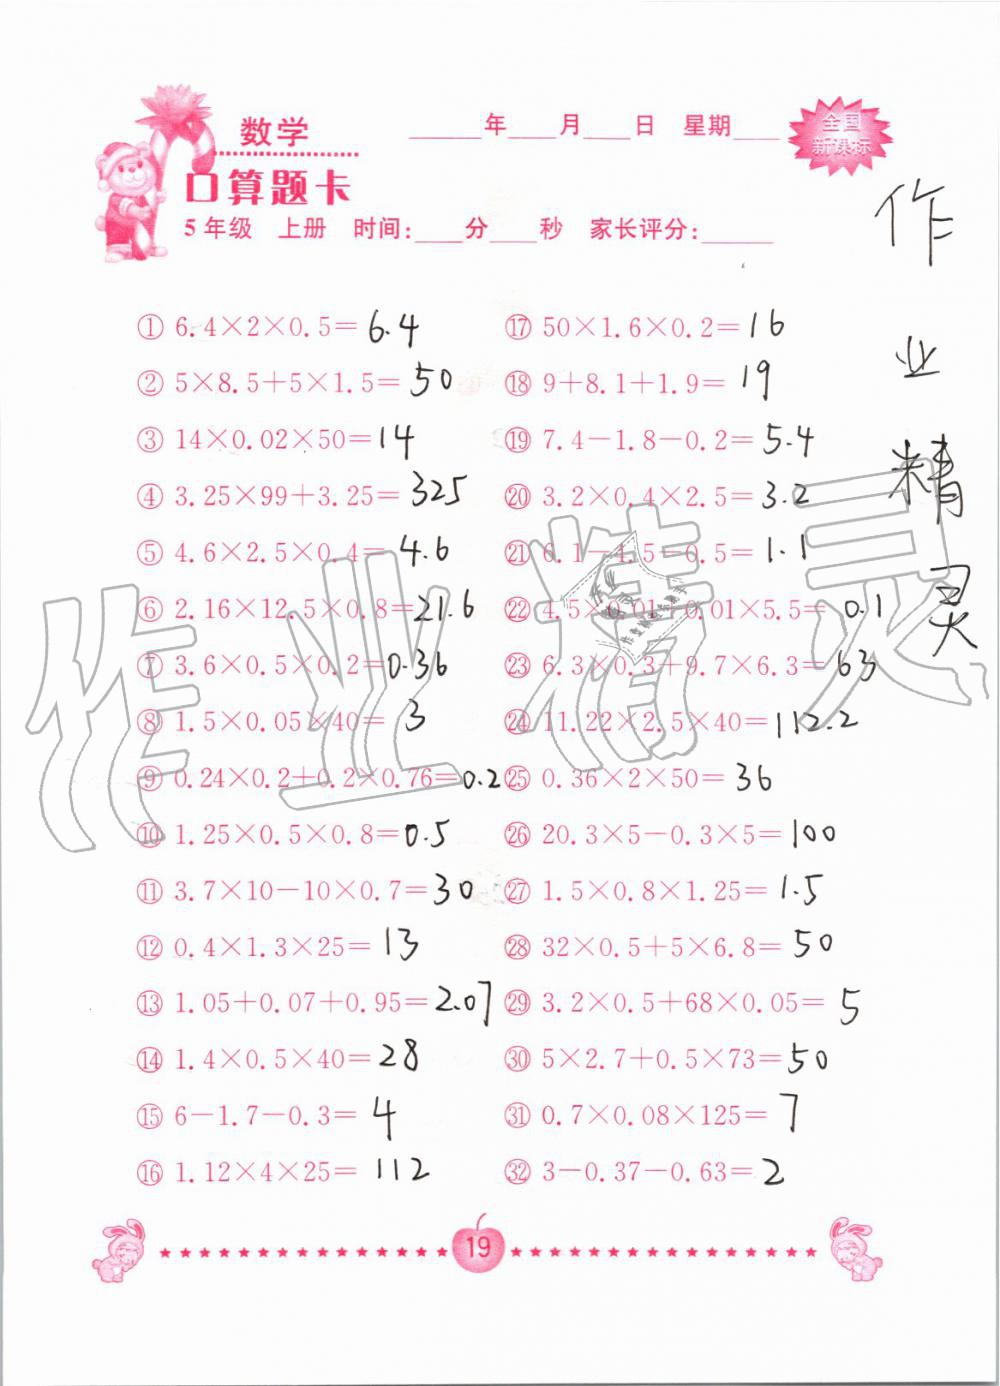 数学
口算题卡
____年____月____日 星期____
全国
新课标
5年级 上册 时间:____分____秒 家长评分:______
作
业
精
灵
① 6.4×2×0.5=6.4
② 5×8.5+5×1.5=50
③ 14×0.02×50=14
④ 3.25×99+3.25=325
⑤ 4.6×2.5×0.4=4.6
⑥ 2.16×12.5×0.8=21.6
⑦ 3.6×0.5×0.2=0.36
⑧ 1.5×0.05×40=3
⑨ 0.24×0.2+0.2×0.76=0.2
⑩ 1.25×0.5×0.8=0.5
⑪ 3.7×10-10×0.7=30
⑫ 0.4×1.3×25=13
⑬ 1.05+0.07+0.95=2.07
⑭ 1.4×0.5×40=28
⑮ 6-1.7-0.3=4
⑯ 1.12×4×25=112
⑰ 50×1.6×0.2=16
⑱ 9+8.1+1.9=19
⑲ 7.4-1.8-0.2=5.4
⑳ 3.2×0.4×2.5=3.2
㉑ 6.1-4.5-0.5=1.1
㉒ 4.5×0.01+0.01×5.5=0.1
㉓ 6.3×0.3+9.7×6.3=63
㉔ 11.22×2.5×40=112.2
㉕ 0.36×2×50=36
㉖ 20.3×5-0.3×5=100
㉗ 1.5×0.8×1.25=1.5
㉘ 32×0.5+5×6.8=50
㉙ 3.2×0.5+68×0.05=5
㉚ 5×2.7+0.5×73=50
㉛ 0.7×0.08×125=7
㉜ 3-0.37-0.63=2
作业精灵
19